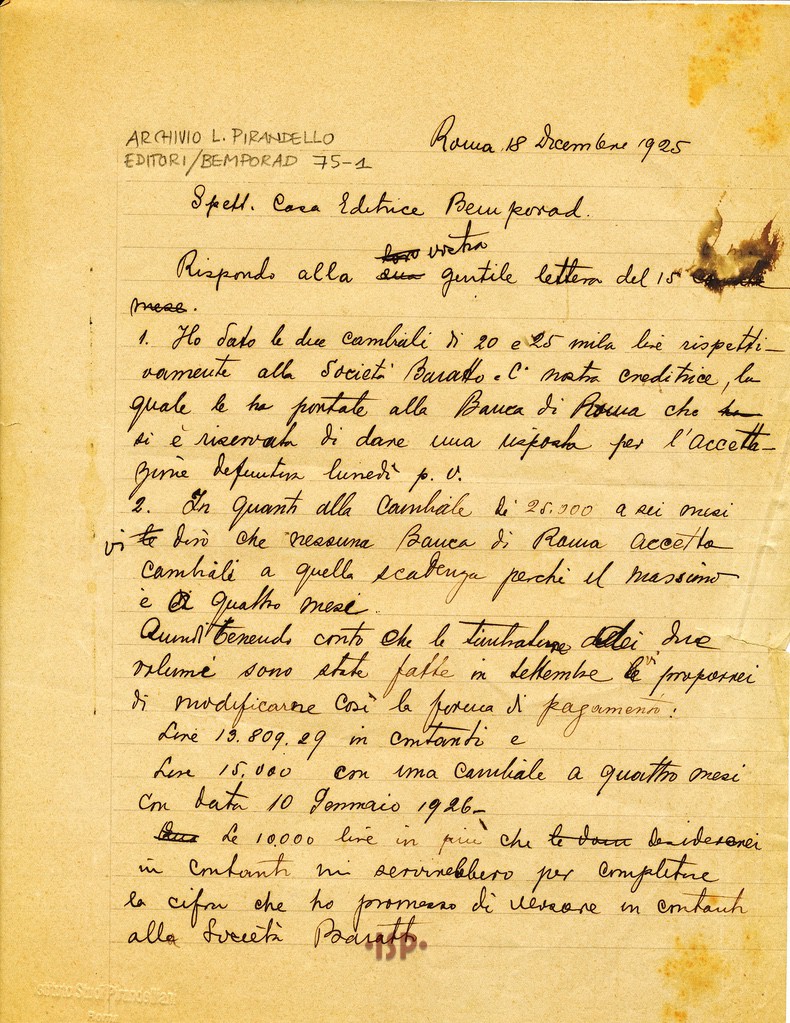 ARCHIVIO L. PIRANDELLO
EDITORI/BEMPORAD 75-1
Roma 18 Dicembre 1925
Spett. Casa Editrice Bemporad.
loro vostra
Rispondo alla sua gentile lettera del 15
mese.
1. Ho dato le due cambiali di 20 e 25 mila lire rispetti-
vamente alla Società Baratto e C' nostra creditrice, la
quale le ha portate alla Banca di Roma che ha
si è riservata di dare una risposta per l'accetta-
zione definitiva lunedì p. v.
2. In quanti alla cambiale di 25.000 a sei mesi
vi le dirò che nessuna Banca di Roma accetta
cambiali a quella scadenza perchè il massimo
è di quattro mesi.
Quindi tenendo conto che le timbrature dei due
volumi sono state fatte in settembre le vi proporrei
di modificare così la forma di pagamento:
Lire 13.809.29 in contanti e
Lire 15.000 con una cambiale a quattro mesi
con data 10 Gennaio 1926-
Le 10.000 lire in più che desidererei
in contanti mi servirebbero per completare
la cifra che ho promesso di versare in contanti
alla Società Baratto
·ISP·
Studi Pirandelliani
Roma